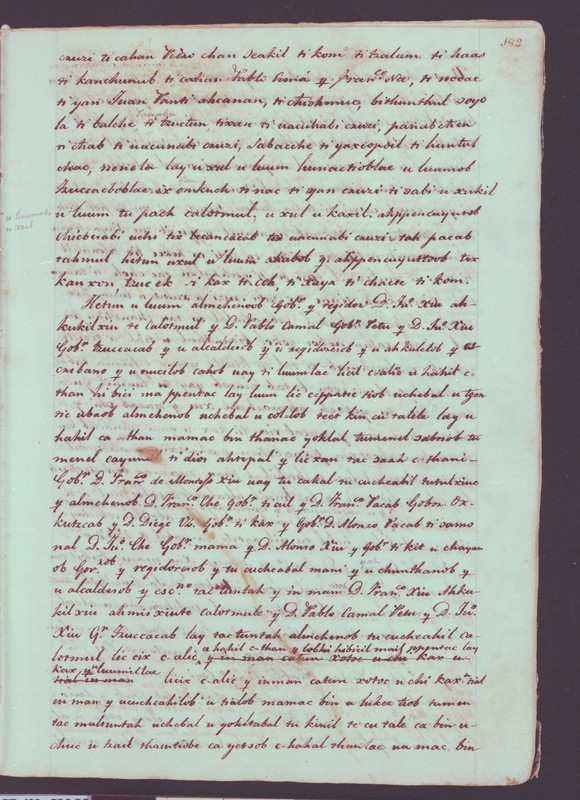 182
cauzi ti cahan Pedro chan seakil ti kom ti tzalam ti haas
ti kanchunub ti cahan Pablo Cima y Franco Nee, ti nodac
ti yan Juan Vanti ahcanan, ti chichmuc, bithunthul soyo
la ti balche ti tzuiten, tixan ti uacunabi cauzi, panub chen
ti chab ti uacunabi cauzi, Sabacche ti yaxcopoil ti huntul
chac, neneta lay u xul u luum hunactioblae u luumob
tzuccacoblae ix omkuch ti nac ti yan cauzi ti sabi u xukil
u luumob
u xul
u luum tu pach calotmul, u xul u kaxil, ahppencuyutob
chicbeabi uchi tix becancacab tex uacunabi cauzi tah pacab
tahmul hetun u xul u luum ahabob y ahppencuyutoob tex
kanxon, tzucek ti kax ti coh, ti xaya ti chacte ti kom.
Hetun u luum almehenob Gobr. y regidor D. Jun. Xiu ah-
kukil xiu te Calotmul y D. Pablo Camal Gobr. Petu y D. Jun. Xiu
Gobr. tzuccacab y u alcaldeob y u regidoreob y u ahkulelob y
ezcibano y u nucilob cahob uay ti luum lae licil c-alic u hahil c-
than hibici ma ppentac lay luum lic c-ppatic tiob uchebal u tzen-
tic ubaob almehenob uchebal u colob ticit kin cu talele lay u
hahil ca than mamac bin thanac yoklal tumenel sabsob tu
menel cayumil ti dios ahtepal y lic xan tac saah c-thanic
Gobr. D. Franco. de Montejo Xiu uay tu cahal u cuchcabil tutulxiuc
y almehenob D. Franco. Che Gobr. ticul y D. Franco. Pacab Gobor. Ox-
kutzcab y D. Diego Uz. Gobr. ti kax y Gobr. D. Alonzo Pacab ti samo
nal D. Jun. Che Gobr. mama y D. Alonso Xiu y Gobr. ti kit u chayan
ob Gor.nob y regidoreob y tu cuchcabal mani y u chunthanob y
u alcaldeob y escno. tac tantah y in man D. Franco. Xiu Ahku-
kil xiu ahmisxiute calotmule y D. Pablo Camal Petu y D. Jun.
Xiu Gr. Tzuccacab lay tac tantah almehenob tu cuchcahil ca-
u hahil c-than y lobki hibicil maix ppentac lay
lotmul lic cix c-alic y in man catun xotoc u chi kax u
kax y luumil lae
tial in man licix c-alic y inman catun xotoc u chi kax tial
in man y ucuchcahilob u tialob mamac bin u lukez tiob tumen
tac multuntah uchebal u yohtabal ti kinil te cu tale ca bin u-
chuc u hail thantiobe ca yetsob c-hahal than lae ua mac bin